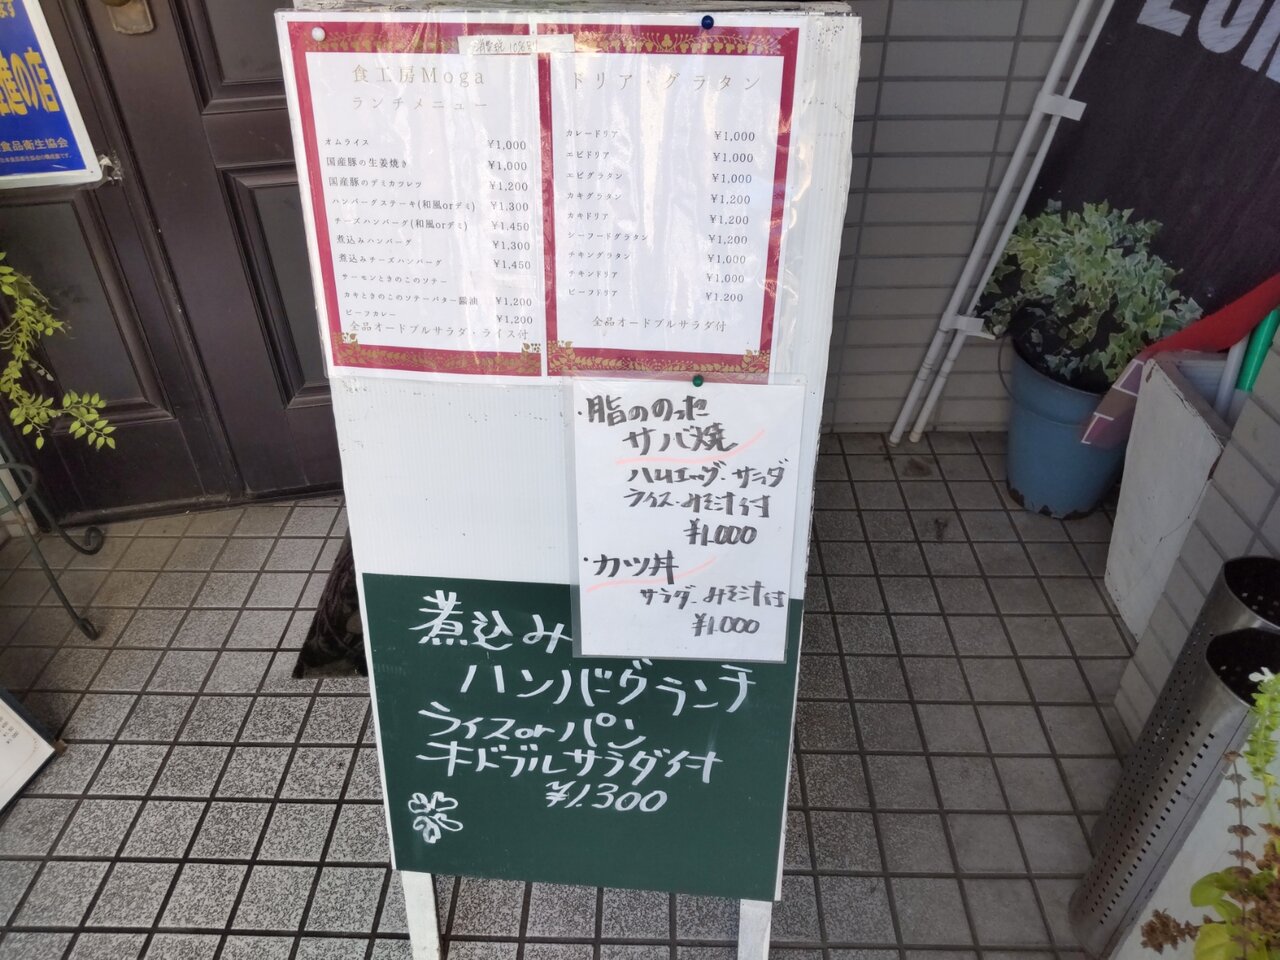 進の店
食品衛生協会
消費税10%別
食工房Moga
ランチメニュー
オムライス ¥1,000
国産豚の生姜焼き ¥1,000
国産豚のデミカツレツ ¥1,200
ハンバーグステーキ(和風orデミ) ¥1,300
チーズハンバーグ(和風orデミ) ¥1,450
煮込みハンバーグ ¥1,300
煮込みチーズハンバーグ ¥1,450
サーモンときのこのソテー
カキときのこのソテーバター醤油 ¥1,200
ビーフカレー ¥1,200
全品オードブルサラダ・ライス付
ドリア・グラタン
カレードリア ¥1,000
エビドリア ¥1,000
エビグラタン ¥1,000
カキグラタン ¥1,200
カキドリア ¥1,200
シーフードグラタン ¥1,200
チキングラタン ¥1,000
チキンドリア ¥1,000
ビーフドリア ¥1,200
全品オードブルサラダ付
・脂ののった
サバ焼
ハムエッグ・サラダ
ライス・みそ汁付
¥1.000
・カツ丼
サラダ・みそ汁付
¥1.000
煮込み
ハンバーグランチ
ライスorパン
オードブルサラダ付
¥1.300